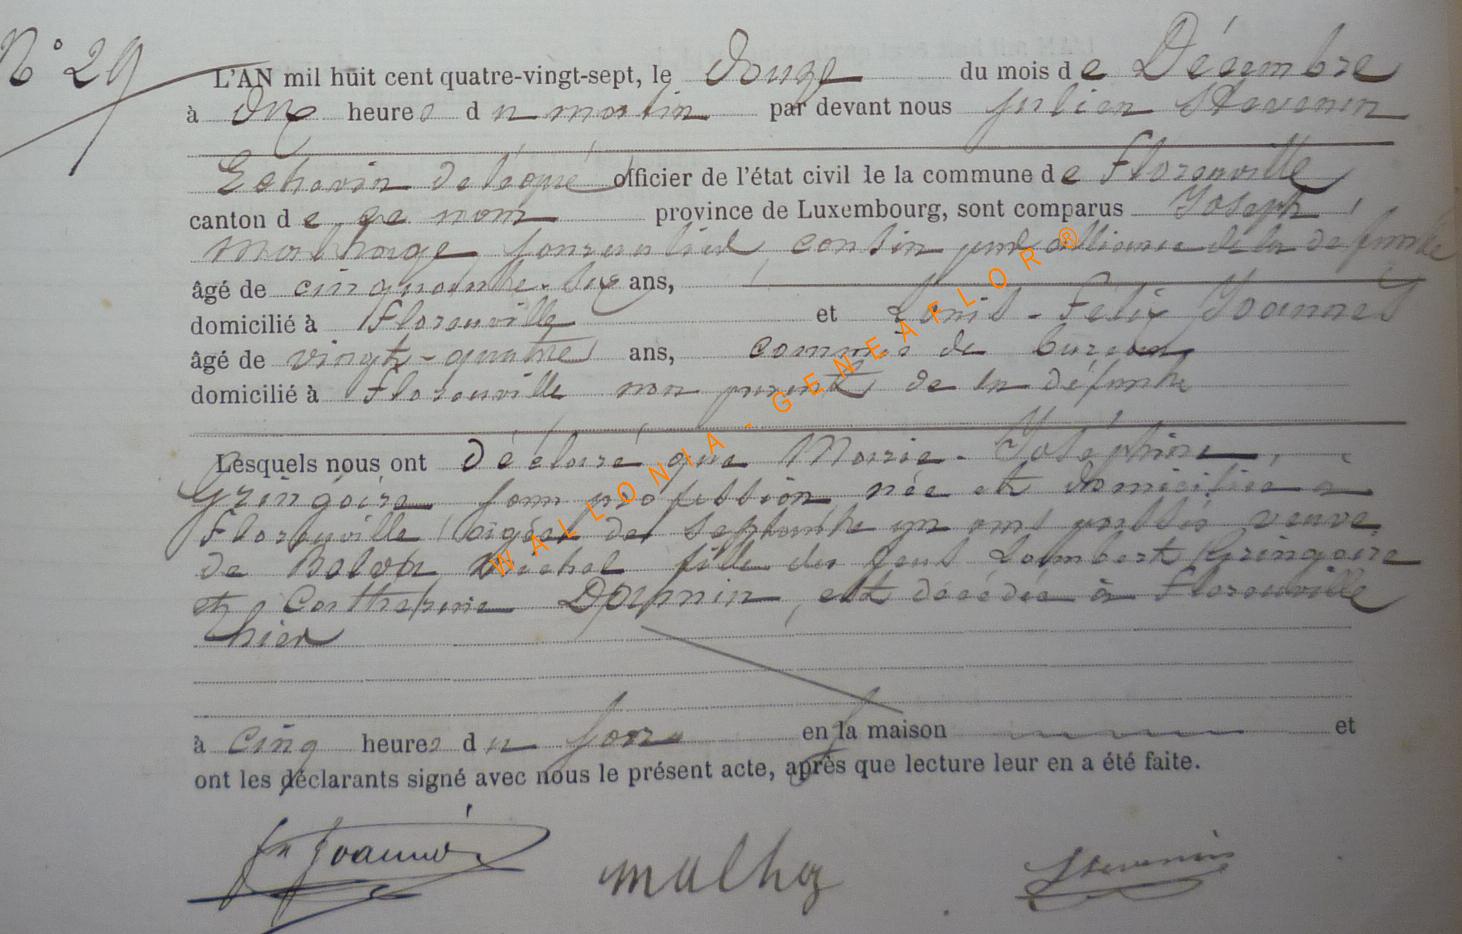 N° 29
L'AN mil huit cent quatre-vingt-sept, le douze du mois de Décembre
à dix heures du matin par devant nous Julien Stevenin
Echevin délégué officier de l'état civil de la commune de Florenville
canton de ce nom province de Luxembourg, sont comparus Joseph
cousin par alliance de la defunte
âgé de cinquante-six ans,
domicilié à Florenville et Louis-Félix Joannes
âgé de vingt-quatre ans, commis de bureau
domicilié à Florenville non parent de la défunte
Lesquels nous ont déclaré que Marie-Joséphine
Gringoire sans profession née et domiciliée à
Florenville âgée de septante un ans passés veuve
de Michel fille des feus Lambert Gringoire
et Catherine est décédée à Florenville
hier
à cinq heures du soir en la maison et
ont les déclarants signé avec nous le présent acte, après que lecture leur en a été faite.
Joannes Stevenin
WALLONIA - GENEAFLOR ®